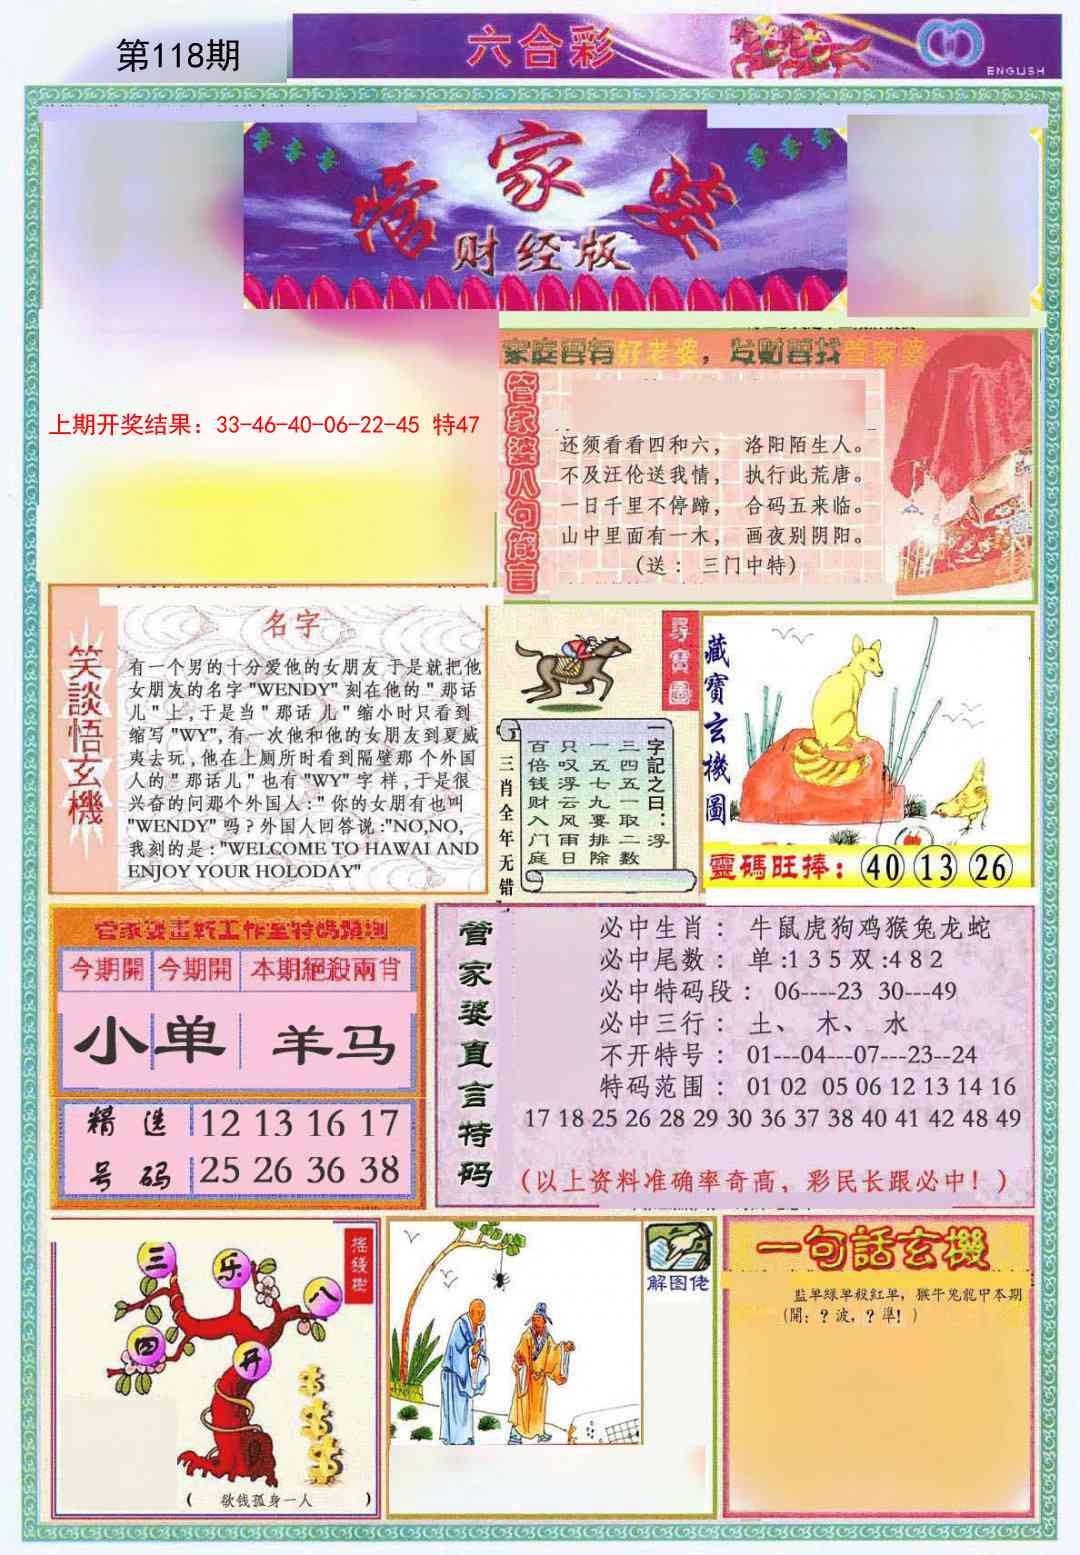 第118期
六合彩
ENGLISH
管家婆
财经版
上期开奖结果：33-46-40-06-22-45 特47
家庭要有好老婆，发财要找管家婆
管家婆八句箴言
还须看看四和六， 洛阳陌生人。
不及汪伦送我情， 执行此荒唐。
一日千里不停蹄， 合码五来临。
山中里面有一木， 画夜别阴阳。
(送 ： 三门中特)
笑談悟玄機
名字
有一个男的十分爱他的女朋友 于是就把他
女朋友的名字 "WENDY" 刻在他的 " 那话
儿 " 上 , 于是当 " 那话 儿 " 缩小时只看到
缩写 "WY", 有一次他和他的女朋友到夏威
夷去玩 , 他在上厕所时看到隔壁那 个外国
人的 " 那话儿 " 也有 "WY" 字 样 , 于是很
兴奋的问那个外国人 : " 你的女朋有也叫
"WENDY" 吗 ? 外国人回答说 :"NO,NO,
我刻的是 : "WELCOME TO HAWAI AND
ENJOY YOUR HOLODAY"
尋寶圖
一字記之曰：浮
三四五一取二数
一五七九要排除
只叹浮云风雨日
百倍钱财入门庭
三肖全年无错
藏寶玄機圖
靈碼旺捧： 40 13 26
管家婆畫软工作室特碼預測
今期開 今期開 本期絕殺兩肖
小 单 羊马
精 选 12 13 16 17
号 码 25 26 36 38
管家婆直言特码
必中生肖 ： 牛鼠虎狗鸡猴兔龙蛇
必中尾数 ： 单 :1 3 5 双 :4 8 2
必中特码段 ： 06----23 30---49
必中三行 ： 土、 木、 水
不开特号 ： 01---04---07---23--24
特码范围 ： 01 02 05 06 12 13 14 16
17 18 25 26 28 29 30 36 37 38 40 41 42 48 49
(以上资料准确率奇高，彩民长跟必中！)
摇钱樹
三 乐 八
四 开
( 欲钱孤身一人 )
解图佬
一句話玄機
监单绿单殺紅单，猴牛兔龍中本期
(開：？波，？準！)